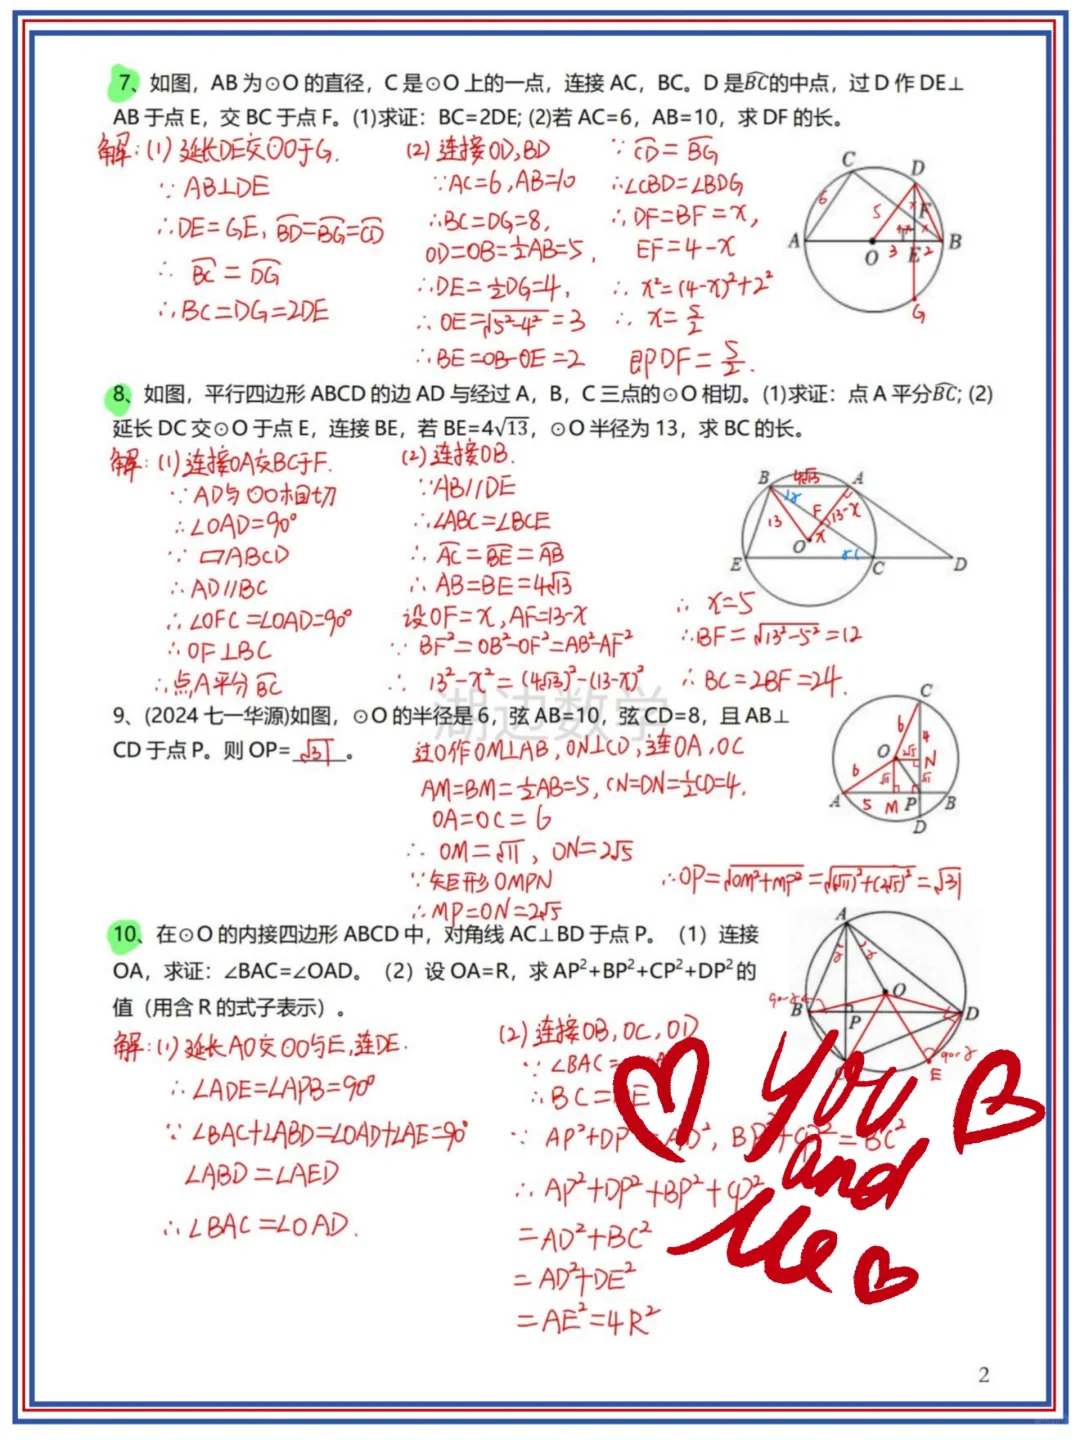 7、如图，AB 为⊙O 的直径，C 是⊙O 上的一点，连接 AC，BC。D 是BC的中点，过 D 作 DE⊥
AB 于点 E，交 BC 于点 F。(1)求证：BC=2DE; (2)若 AC=6，AB=10，求 DF 的长。
解：(1) 延长DE交⊙O于G.
∵ AB⊥DE
∴DE=GE, BD=BG=CD
∴ BC=DG
∴BC=DG=2DE
(2) 连接OD,BD
∵AC=6, AB=10
∴BC=DG=8,
OD=OB=½AB=5,
∴DE=½DG=4,
∴OE=√5²-4²=3
∴BE=OB-OE=2
∵ CD=BG
∴∠CBD=∠BDG
∴DF=BF=x,
EF=4-x
∴ x²=(4-x)²+2²
∴ x=5/2
即DF=5/2.
C D 6 5 x F 4-x x A O 3 E 2 B G
8、如图，平行四边形 ABCD 的边 AD 与经过 A，B，C 三点的⊙O 相切。(1)求证：点 A 平分BC; (2)
延长 DC 交⊙O 于点 E，连接 BE，若 BE=4√13，⊙O 半径为 13，求 BC 的长。
解：(1) 连接OA交BC于F.
∵AD与⊙O相切
∴∠OAD=90°
∵ ▱ABCD
∴AD//BC
∴∠OFC=∠OAD=90°
∴OF⊥BC
∴点A平分BC
(2) 连接OB.
∵AB//DE
∴∠ABC=∠BCE
∴AC=BE=AB
∴AB=BE=4√13
设OF=x, AF=13-x
∵ BF²=OB²-OF²=AB²-AF²
∴ 13²-x²=(4√13)²-(13-x)²
∴ x=5
∴BF=√13²-5²=12
∴BC=2BF=24.
B 4√13 A 13 F 13-x O x E C D
湖边数学
9、(2024 七一华源)如图，⊙O 的半径是 6，弦 AB=10，弦 CD=8，且 AB⊥
CD 于点 P。则 OP= √31 。
过O作OM⊥AB, ON⊥CD, 连OA,OC
AM=BM=½AB=5, CN=DN=½CD=4,
OA=OC=6
∴ OM=√11, ON=2√5
∵矩形OMPN
∴MP=ON=2√5
∴OP=√OM²+MP²=√(√11)²+(2√5)²=√31
C 6 4 O 2√5 N 6 √11 √11 A 5 M P B D
10、在⊙O 的内接四边形 ABCD 中，对角线 AC⊥BD 于点 P。（1）连接
OA，求证：∠BAC=∠OAD。（2）设 OA=R，求 AP²+BP²+CP²+DP² 的
值（用含 R 的式子表示）。
解：(1)延长AO交⊙O与E,连DE.
∴∠ADE=∠APB=90°
∵∠BAC+∠ABD=∠OAD+∠AE=90°
∠ABD=∠AED
∴∠BAC=∠OAD.
(2)连接OB,OC,OD
∵ ∠BAC=
∴BC=DE
∵ AP²+DP²=AD², BP²+CP²=BC²
∴ AP²+DP²+BP²+CP²
=AD²+BC²
=AD²+DE²
=AE²=4R²
A O B P D E
You
and
Me
2